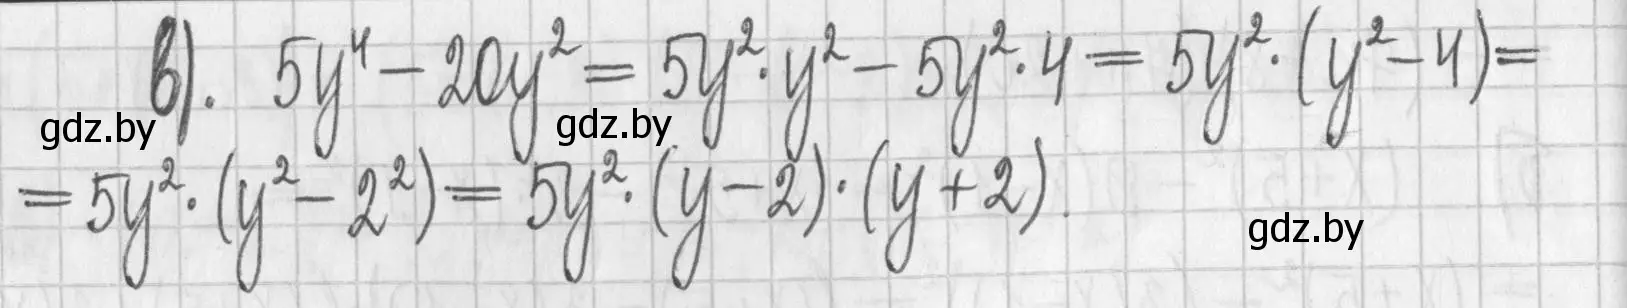 в). 5y⁴ − 20y² = 5y² · y² − 5y² · 4 = 5y² · (y² − 4) =
gdz.by gdz.by
= 5y² · (y² − 2²) = 5y² · (y − 2) · (y + 2).
gdz.by